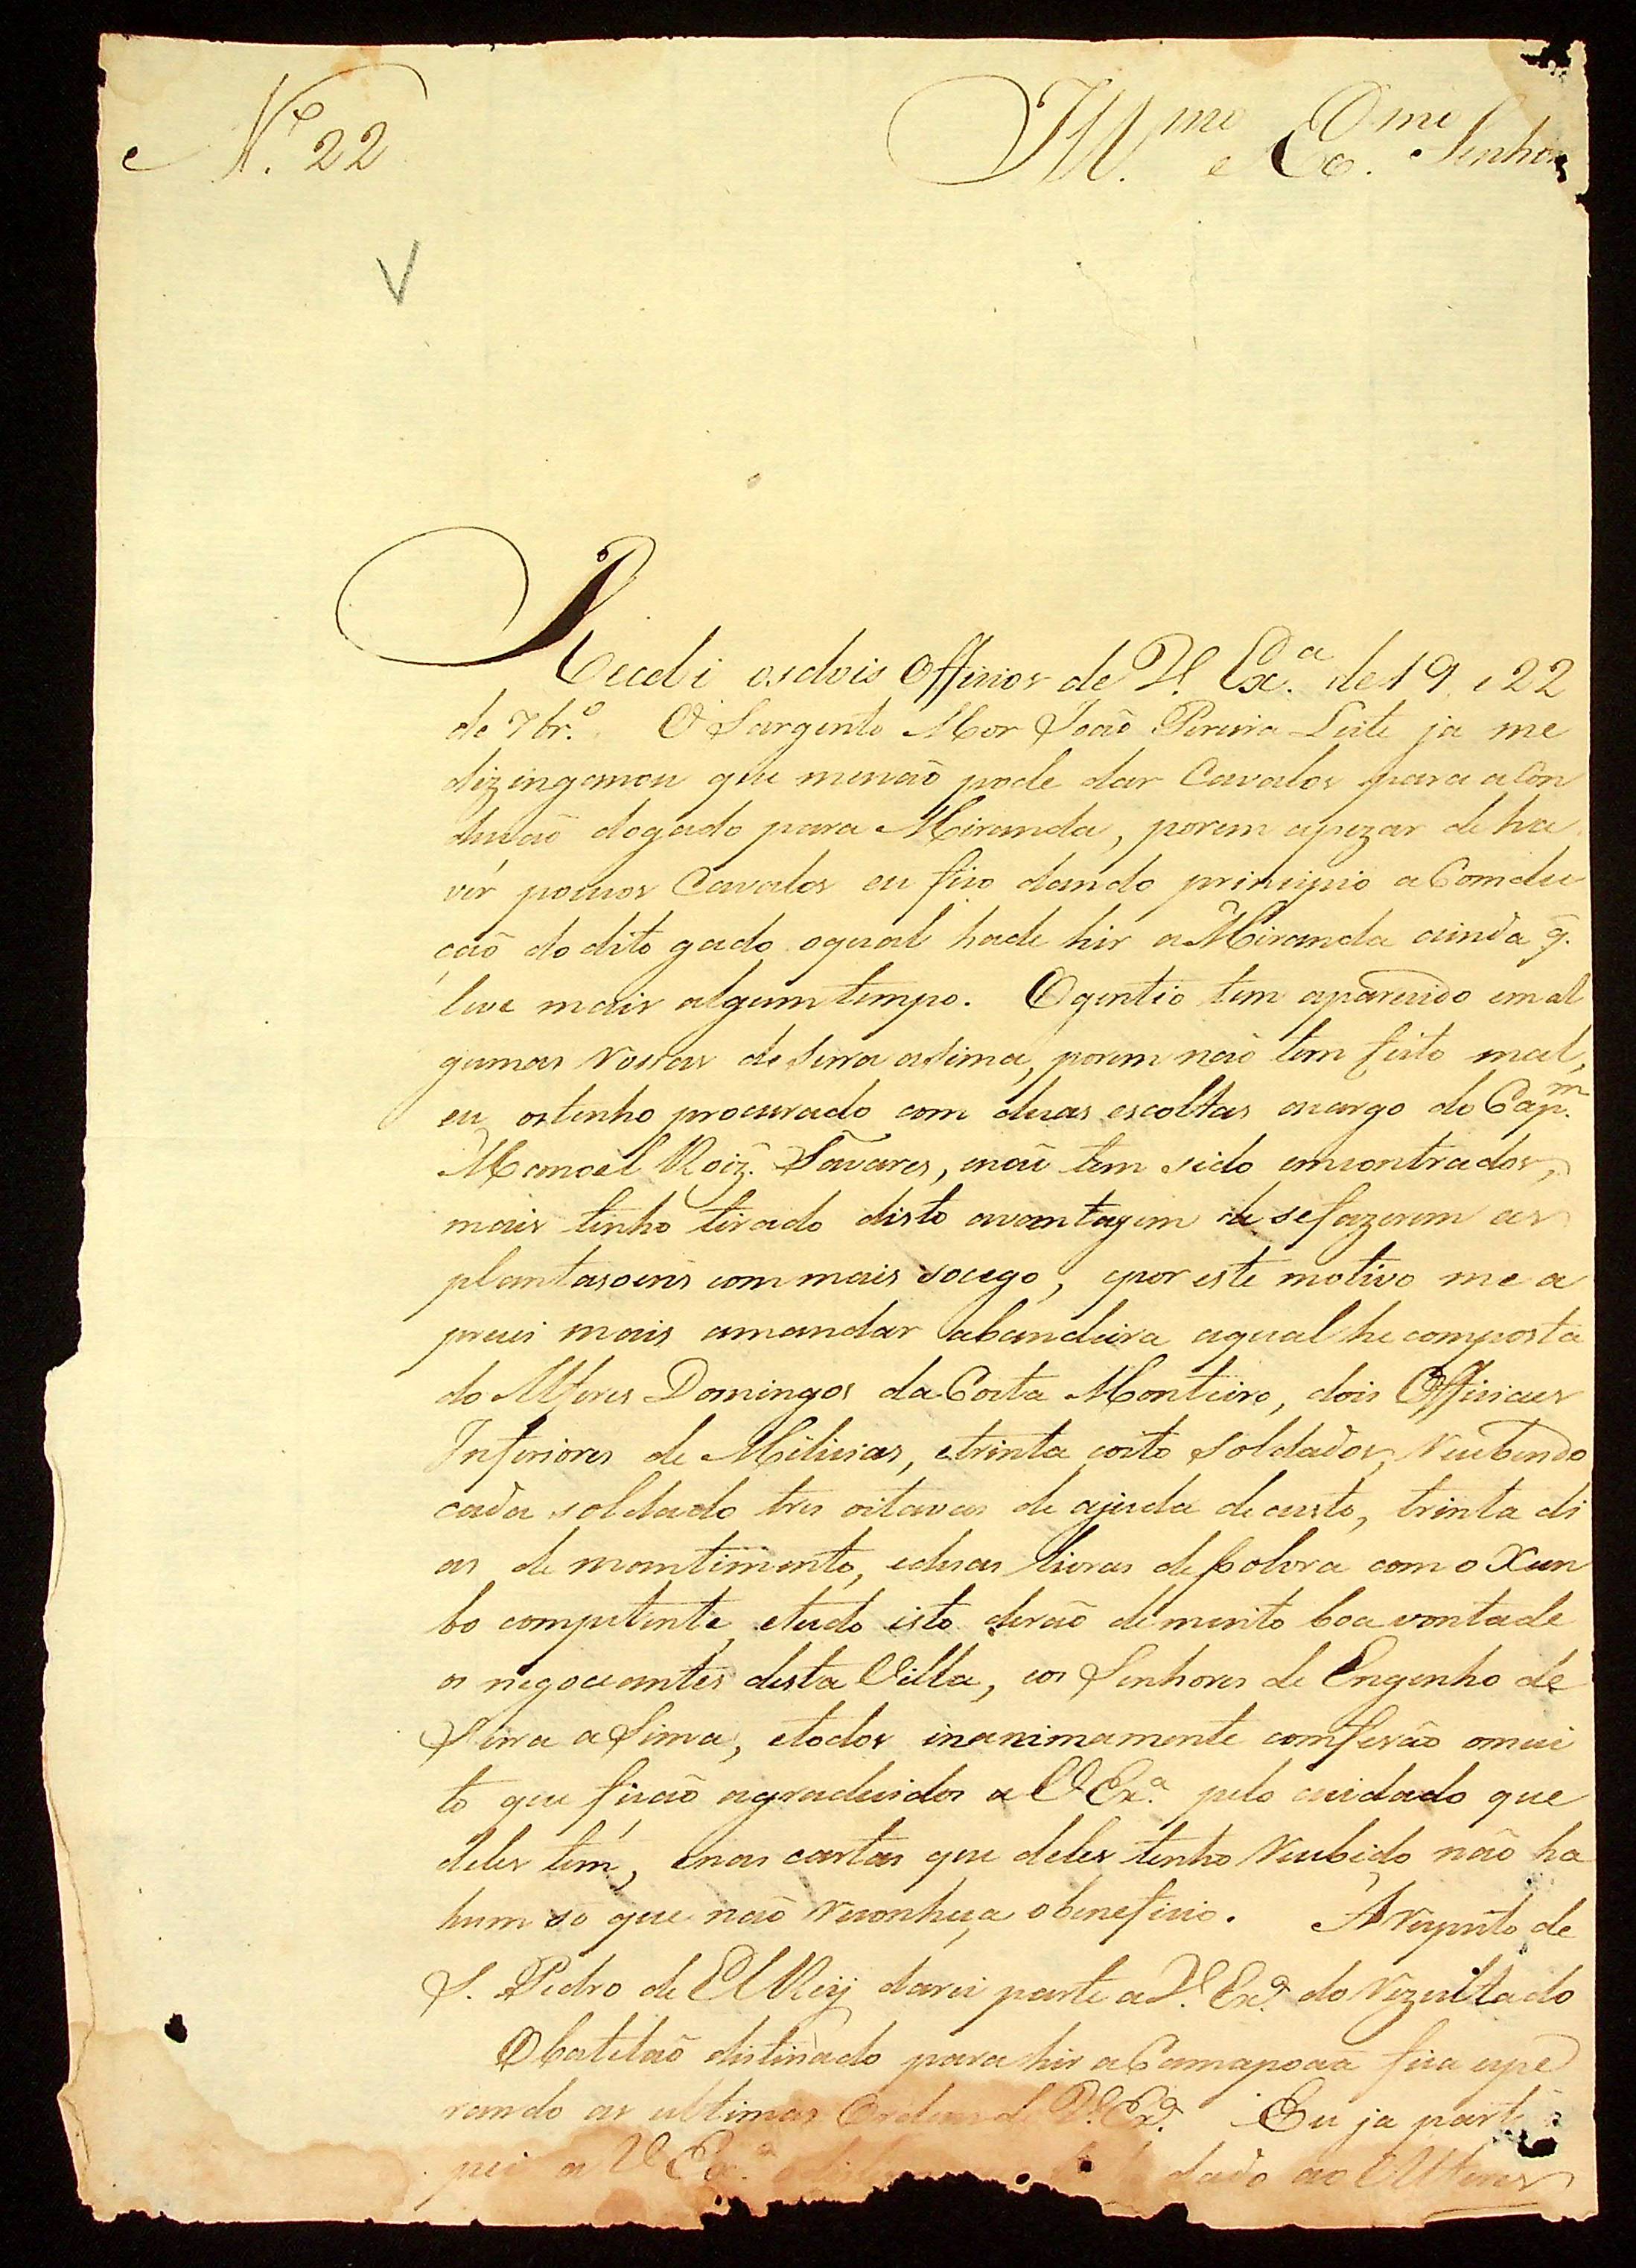 N.º 22
Ill.mo e Ex.mo Senhor
V
Recebi osdois Officios de V. Ex.a de 19, e 22
de 7br.º O Sargento Mor João Pereira Leite ja me
dizingamou que menaõ pode dar Cavalos para a Con
duçaõ dogado para Miranda, porem apezar de ha
vér poucos Cavalos eu fico dando principio a Comdu
çaõ do dito gado oqual hade hir a Miranda ainda q̃.
leve mais algum tempo. O gentio tem aparecido em al
gumas rossas de Serra asima, porem não tem feito mal,
eu ostenho procurado com duas escoltas acargo do Cap.m
Manoel Roiz. Tavares, enaõ tem sido emcontrados,
mais tenho tirado disto avantagem de sefazerem as
plantasoens com mais socego, epor este motivo me a
preci mais amandar abandeira aqual he composta
do Alferes Domingos da Costa Monteiro, dois Officiaes
Inferiores de Milicias, etrinta eoito soldados, recebendo
cada soldado tres oitavas de ajuda de custo, trinta di
as de mantimento, eduas livras de polvra com o Xun
bo competente, etudo isto derão de muito boa vontade
os negoceantes desta Villa, eos Senhores de Engenho de
Serra a Sima, etodos inanimamente comfesão omui
to que ficaõ agradecidos a V Ex.ª pelo cuidado que
deles tem, enas cartas que deles tenho recebido não ha
hum só que naõ reconheça obeneficio. A respeito de
S. Pedro de ElRey darei parte a V. Ex.ª do rezultado
O batelaõ distinado para hir a Camapoaã fica espe
rando as ultimas Ordens de V. Ex.ª Eu ja parti
pei a V Ex.ª dado ao Alferes